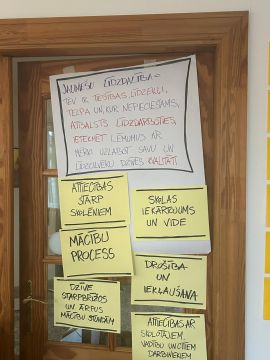 JAUNIEŠU LĪDZDALĪBA -
TEV IR TIESĪBAS, LĪDZEKĻI,
TELPA UN, KUR NEPIECIEŠAMS,
ATBALSTS LĪDZDARBOTIES,
IETEKMĒT LĒMUMUS AR
MĒRĶI UZLABOT SAVU UN
LĪDZCILVĒKU DZĪVES KVALITĀTI
ATTIECĪBAS
STARP
SKOLĒNIEM
SKOLAS
IEKĀRTOJUMS
UN VIDE
MĀCĪBU
PROCESS
DROŠĪBA
UN
IEKĻAUŠANA
DZĪVE
STARPBRĪŽOS
UN ĀRPUS
MĀCĪBU STUNDĀM
ATTIECĪBAS AR
SKOLOTĀJIEM,
VADĪBU UN CITIEM
DARBINIEKIEM